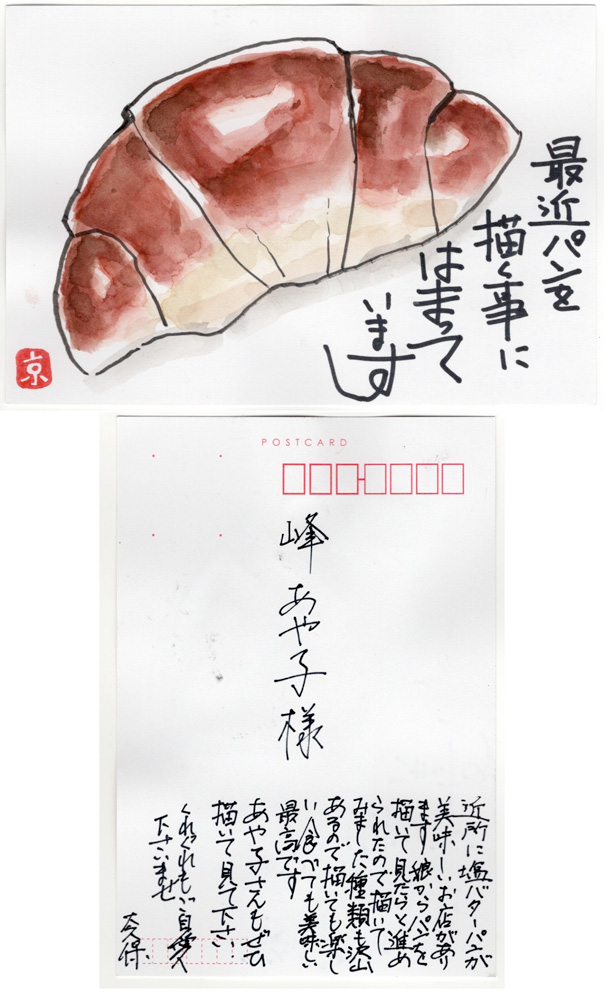 最近パンを
描く事に
はまって
います
京
POSTCARD
峰あや子様
近所に塩バターパンが
美味しいお店があり
ます娘からパンを
描いて見たらと進め
られたので描いて
みました種類も沢山
あるので描いても楽し
い食べても美味しい
最高です
あや子さんもぜひ
描いて見て下さい
くれぐれもご自愛
下さいませ